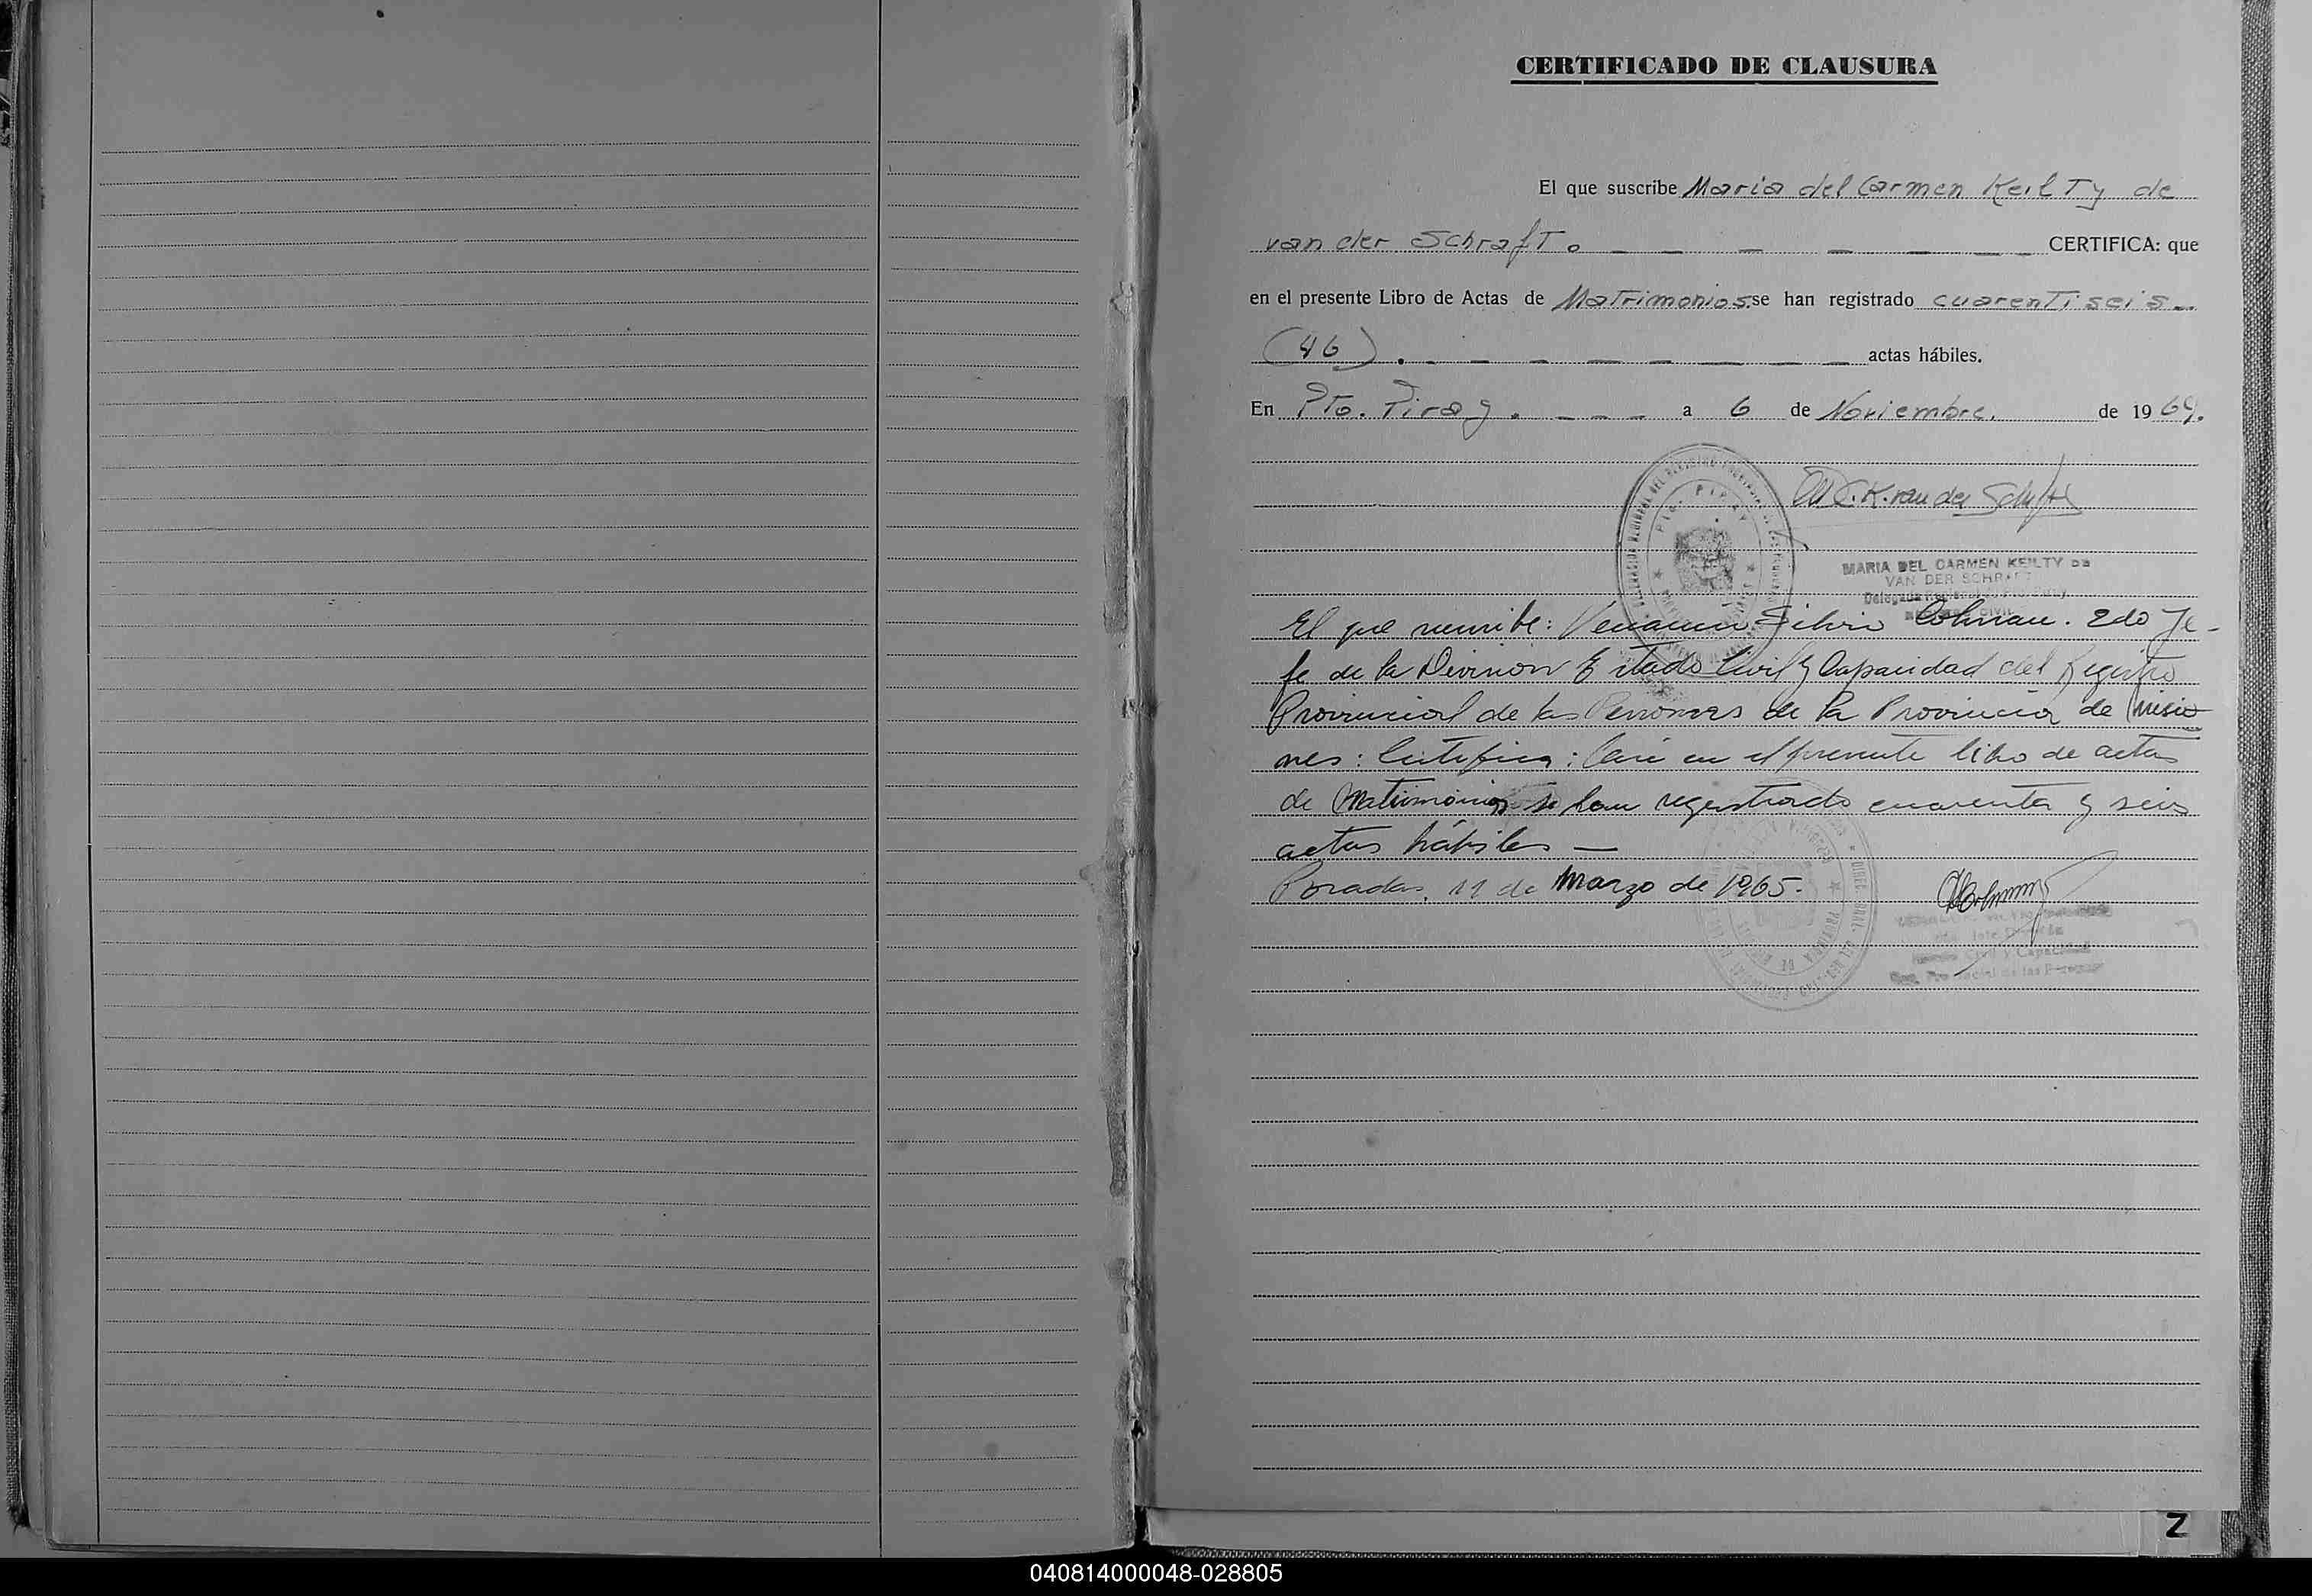 CERTIFICADO DE CLAUSURA
El que suscribe Maria del Carmen Keilty de
van der Schraft. CERTIFICA: que
en el presente Libro de Actas de Matrimonios se han registrado cuarentiseis
(46). actas hábiles.
En Pto. Piray. a 6 de Noviembre. de 1964.
M. C. K. van der Schraft
Pto. PIRAY
MARIA DEL CARMEN KEILTY DE
VAN DER SCHRAFT
El que suscribe: Venancio Silvio Colman. 2do Je-
fe de la Division Estado Civil y Capacidad del Registro
Provincial de las Personas de la Provincia de Misio
nes: Certifica: Que en el presente libro de actas
de Matrimonios se han registrado cuarenta y seis
actas hábiles —
Posadas, 11 de Marzo de 1965.
Civil y Capacidad
Z
040814000048-028805